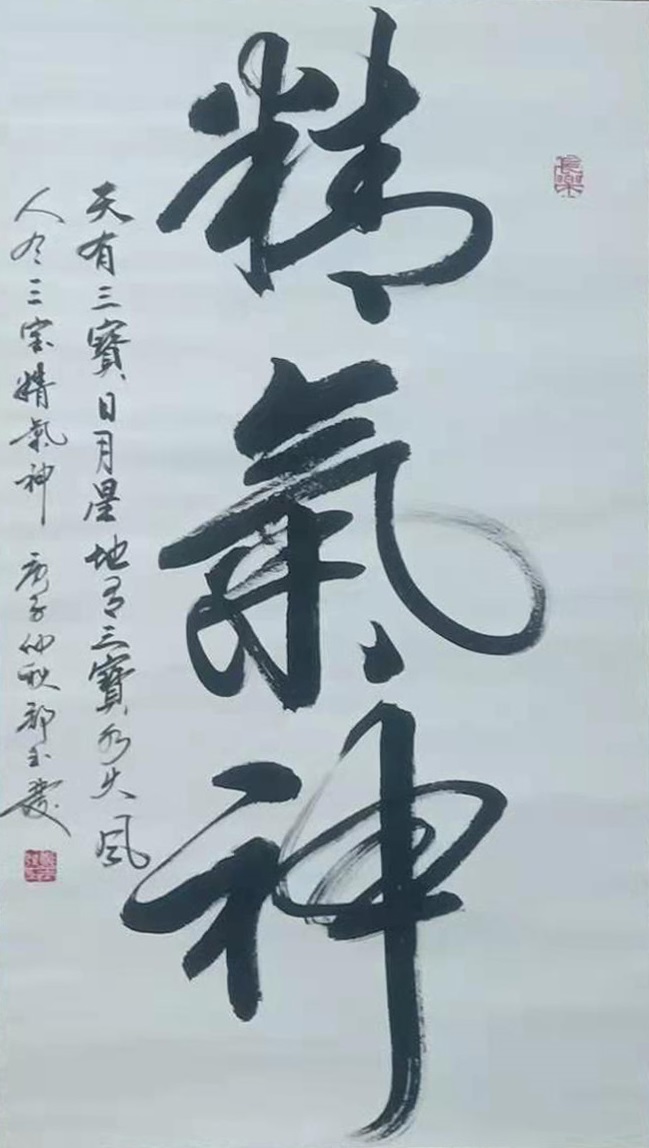 長樂
精氣神
天有三寶日月星地有三寶水火風
人有三宝精氣神 庚子仲秋